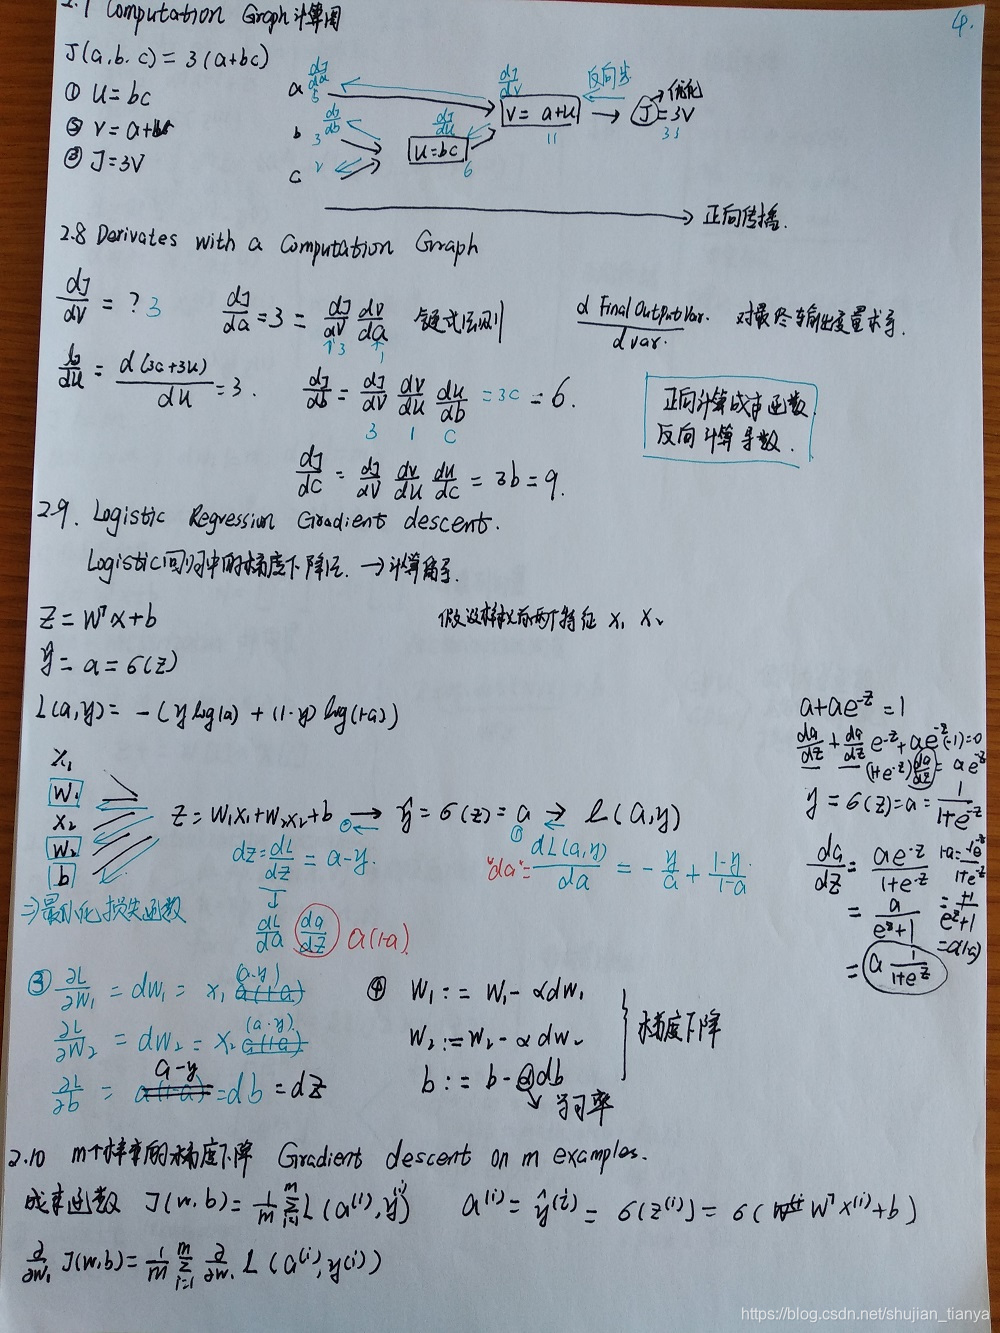 2.7 Computation Graph 计算图
4.
J(a,b,c) = 3(a+bc)
① u = bc
② v = a+u
③ J = 3V
a dJ/da 5
b dJ/db 3
c 2
dJ/du u=bc 6
dJ/dv v = a+u 11
反向步
J = 3V 33
→ 优化
→ 正向传播.
2.8 Derivates with a Computation Graph
dJ/dv = ? 3 dJ/da = 3 = dJ/dv dv/da 链式法则 d FinalOutputVar. / d var. 对最终输出变量求导.
↑3 ↑1
dJ/du = d(3a+3u)/du = 3. dJ/db = dJ/dv dv/du du/db = 3c = 6.
3 1 c
正向计算成本函数
反向计算导数.
dJ/dc = dJ/dv dv/du du/dc = 3b = 9.
2.9. Logistic Regression Gradient descent.
Logistic回归中的梯度下降法. →计算偏导.
Z = wᵀx+b 假设样本有两个特征 x₁ x₂
ŷ = a = σ(z)
L(a,y) = -(y log(a) + (1-y) log(1-a))
x₁
w₁
x₂
w₂
b
Z = w₁x₁+w₂x₂+b → ŷ = σ(z) = a → L(a,y)
② ①
dz = dL/dz = a-y. "da" = dL(a,y)/da = -y/a + (1-y)/(1-a)
dL/da da/dz a(1-a)
⇒最小化损失函数
a+ae^-z = 1
da/dz + da/dz e^-z + ae^-z(-1) = 0
(1+e^-z) da/dz = ae^-z
y = σ(z) = a = 1/(1+e^-z)
da/dz = ae^-z/(1+e^-z)
= a/(e^z+1)
= a 1/(1+e^z)
= a(1-a)
③ ∂L/∂w₁ = dw₁ = x₁ (a-y) a(1-a)
∂L/∂w₂ = dw₂ = x₂ (a-y) a(1-a)
∂L/∂b = a-y a(1-a) = db = dz
④ w₁ := w₁ - αdw₁
w₂ := w₂ - αdw₂
b := b - αdb
梯度下降
学习率
2.10 m个样本的梯度下降 Gradient descent on m examples.
成本函数 J(w,b) = 1/m Σ_{i=1}^m L(a⁽ⁱ⁾, y⁽ⁱ⁾) a⁽ⁱ⁾ = ŷ⁽ⁱ⁾ = σ(z⁽ⁱ⁾) = σ(wᵀx⁽ⁱ⁾+b)
∂/∂w₁ J(w,b) = 1/m Σ_{i=1}^m ∂/∂w₁ L(a⁽ⁱ⁾, y⁽ⁱ⁾)
https://blog.csdn.net/shujian_tianya